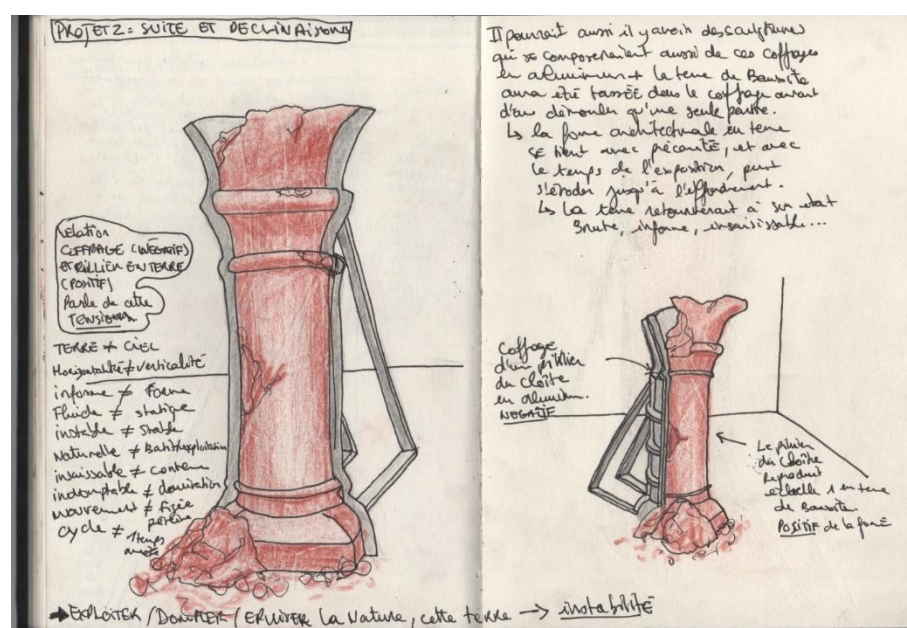 PROJET 2 : SUITE ET DECLINAISONS
Relation
COFFRAGE (NÉGATIF)
ET PILLIER EN TERRE
(POSITIF)
Parle de cette
TENSION
TERRE ≠ CIEL
Horizontalité ≠ verticalité
informe ≠ Forme
Fluide ≠ statique
instable ≠ Stable
Naturelle ≠ Bati/exploitation
insaissable ≠ contenu
indomptable ≠ domination
mouvement ≠ figée
pérenne
cycle ≠ 1 temps
Il pourrait aussi il y avoir des sculptures
qui se composeraient aussi de ces coffrages
en aluminium + la terre de Bauxite
aura été tassée dans le coffrage avant
d'en démouler qu'une seule partie.
↳ la forme architecturale en terre
se tient avec précarité, et avec
le temps de l'exposition, peut
s'éroder jusqu'à l'effondrement.
↳ La terre retournerait à son état
Brute, informe, insaisissable...
Coffrage
d'un pillier
du Cloître
en aluminium.
NEGATIF
Le pilier
du Cloître
Reproduit
échelle 1 en terre
de Bauxite.
POSITIF de la forme
→ EXPLOITER / DOMPTER / la Nature, cette terre → instabilité